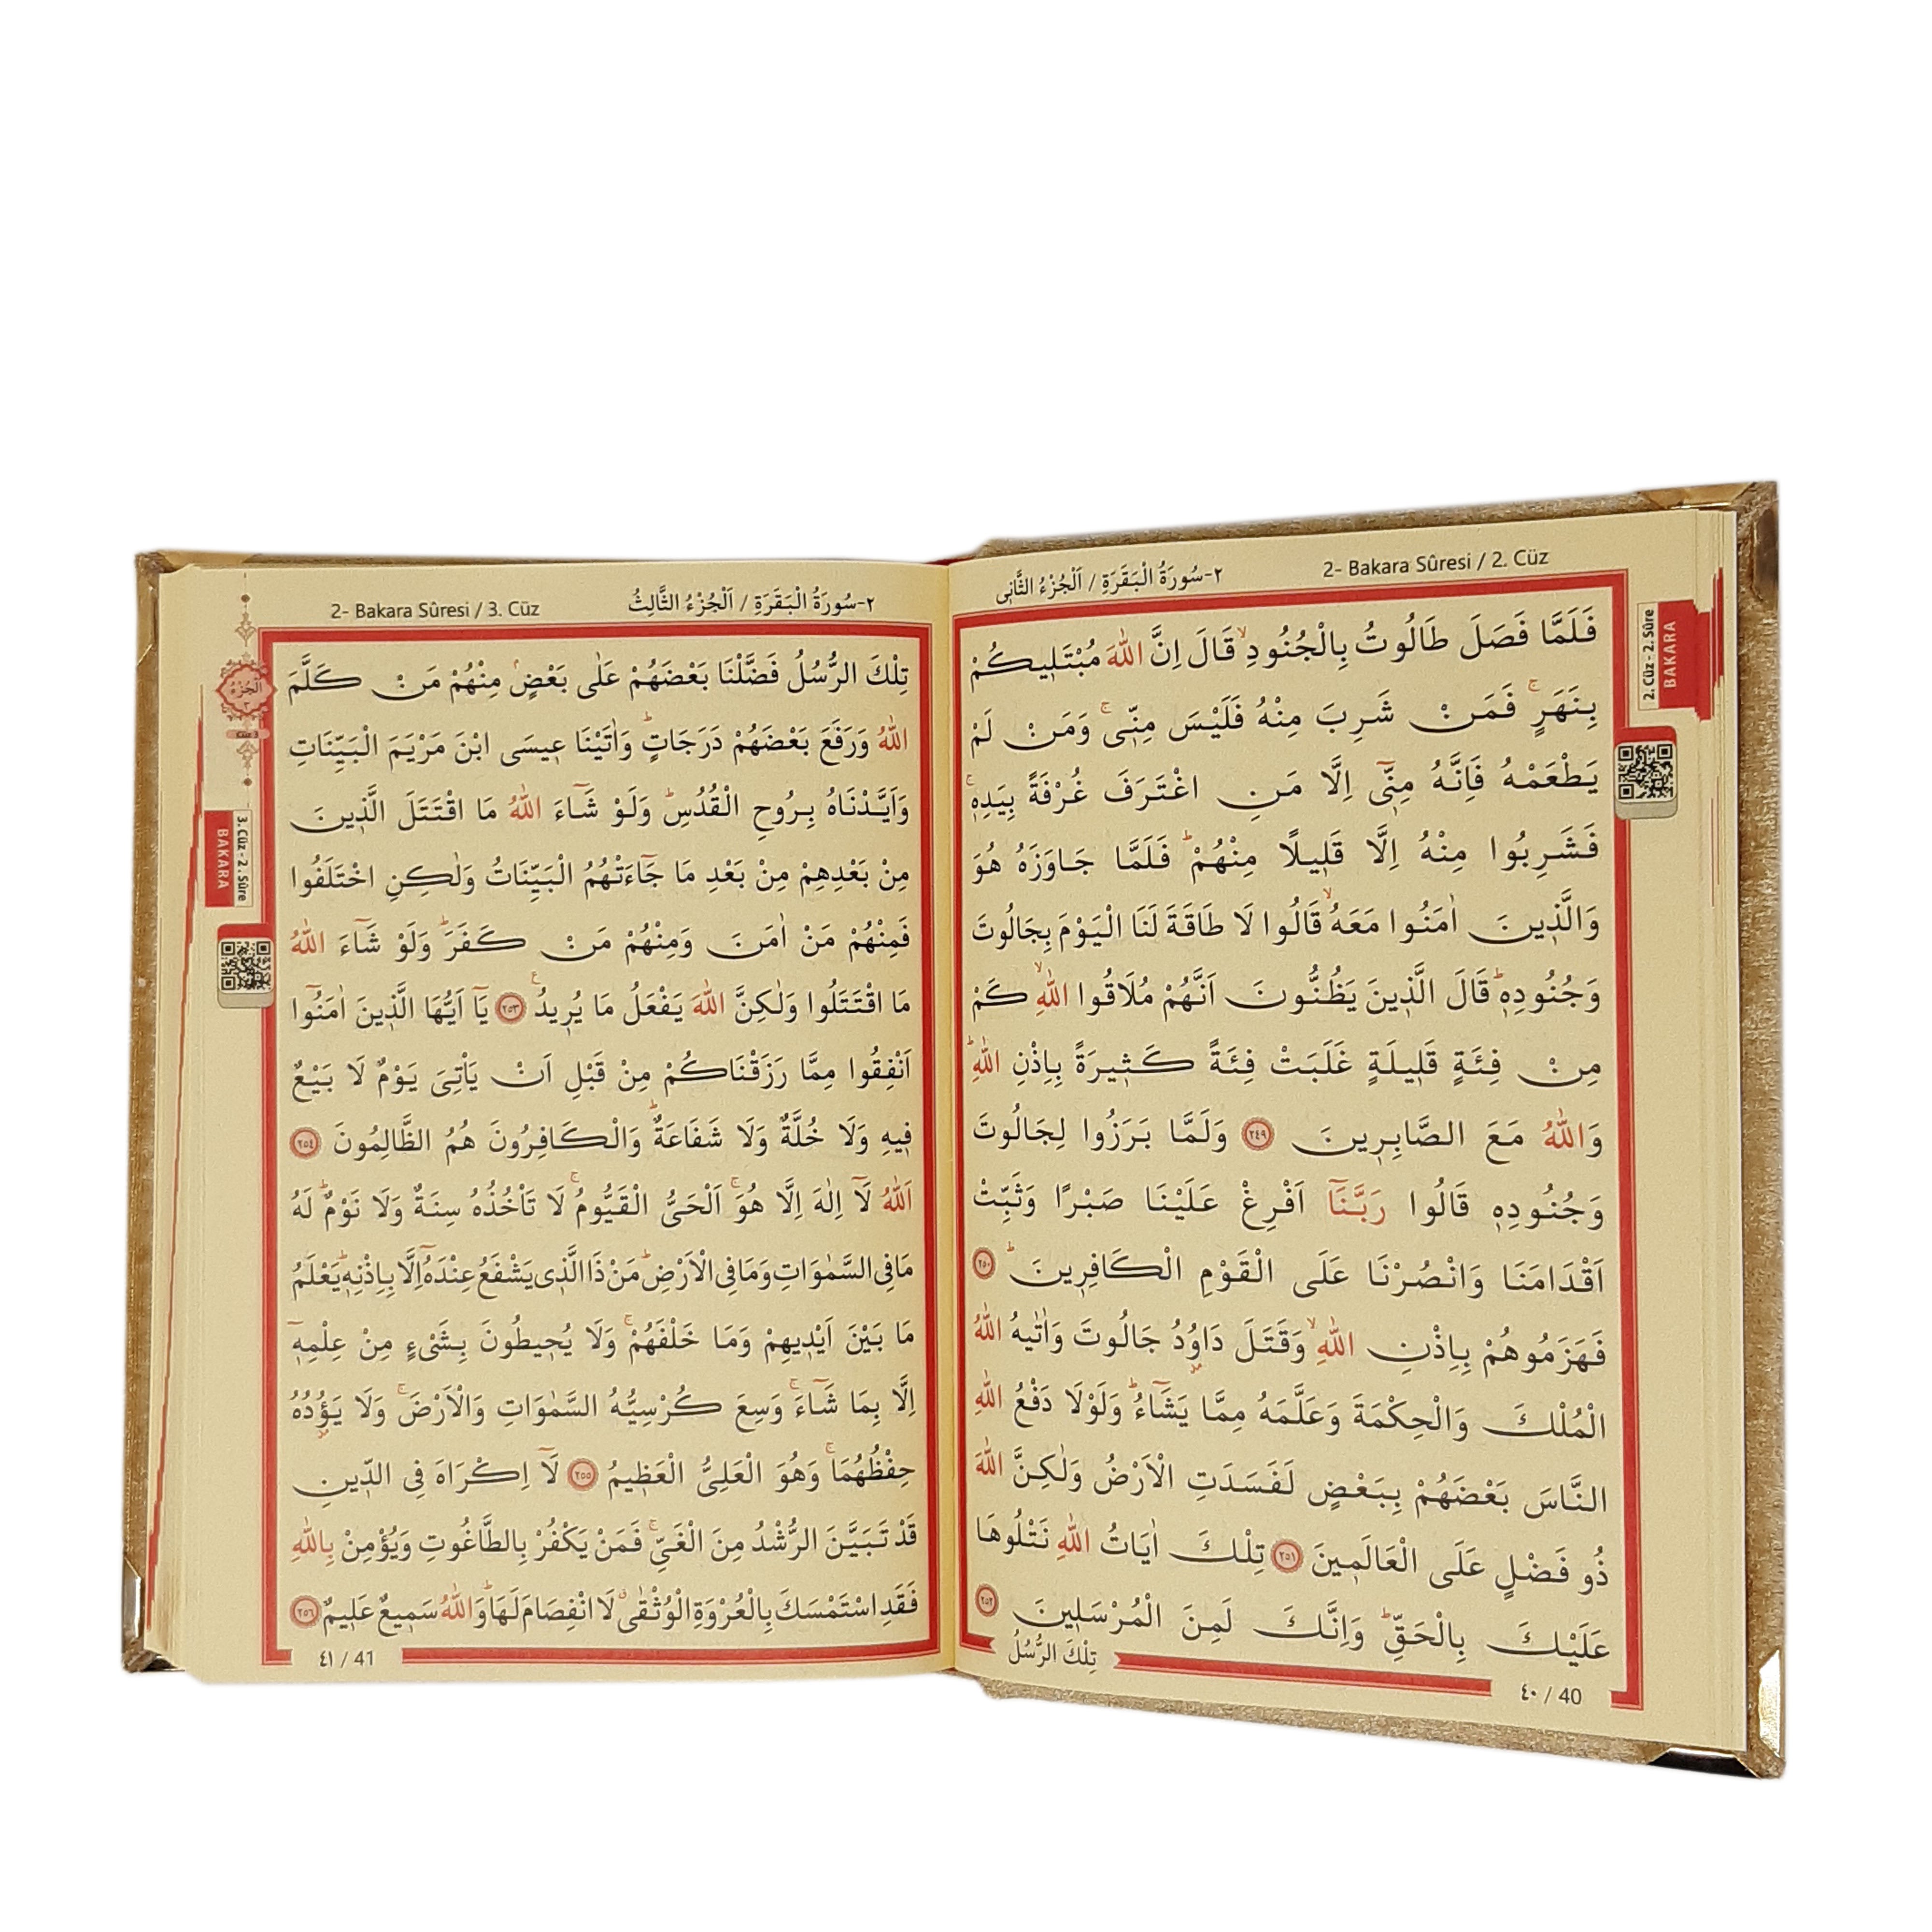 ٢-سُورَةُ الْبَقَرَةِ / اَلْجُزْءُ الثَّانِى
2- Bakara Sûresi / 2. Cüz
2. Cüz - 2. Sûre
BAKARA
فَلَمَّا فَصَلَ طَالُوتُ بِالْجُنُودِۙ قَالَ اِنَّ اللّٰهَ مُبْتَلٖيكُمْ
بِنَهَرٍۚ فَمَنْ شَرِبَ مِنْهُ فَلَيْسَ مِنّٖىۚ وَمَنْ لَمْ
يَطْعَمْهُ فَاِنَّهُ مِنّٖٓى اِلَّا مَنِ اغْتَرَفَ غُرْفَةً بِيَدِهٖۚ
فَشَرِبُوا مِنْهُ اِلَّا قَلٖيلًا مِنْهُمْؕ فَلَمَّا جَاوَزَهُ هُوَ
وَالَّذٖينَ اٰمَنُوا مَعَهُۙ قَالُوا لَا طَاقَةَ لَنَا الْيَوْمَ بِجَالُوتَ
وَجُنُودِهٖؕ قَالَ الَّذٖينَ يَظُنُّونَ اَنَّهُمْ مُلَاقُوا اللّٰهِۙ كَمْ
مِنْ فِئَةٍ قَلٖيلَةٍ غَلَبَتْ فِئَةً كَثٖيرَةً بِاِذْنِ اللّٰهِؕ
وَاللّٰهُ مَعَ الصَّابِرٖينَ ﴿٢٤٩﴾ وَلَمَّا بَرَزُوا لِجَالُوتَ
وَجُنُودِهٖ قَالُوا رَبَّنَٓا اَفْرِغْ عَلَيْنَا صَبْرًا وَثَبِّتْ
اَقْدَامَنَا وَانْصُرْنَا عَلَى الْقَوْمِ الْكَافِرٖينَؕ ﴿٢٥٠﴾
فَهَزَمُوهُمْ بِاِذْنِ اللّٰهِۙ وَقَتَلَ دَاوُدُ جَالُوتَ وَاٰتٰيهُ اللّٰهُ
الْمُلْكَ وَالْحِكْمَةَ وَعَلَّمَهُ مِمَّا يَشَٓاءُؕ وَلَوْلَا دَفْعُ اللّٰهِ
النَّاسَ بَعْضَهُمْ بِبَعْضٍ لَفَسَدَتِ الْاَرْضُ وَلٰكِنَّ اللّٰهَ
ذُو فَضْلٍ عَلَى الْعَالَمٖينَ ﴿٢٥١﴾ تِلْكَ اٰيَاتُ اللّٰهِ نَتْلُوهَا
عَلَيْكَ بِالْحَقِّؕ وَاِنَّكَ لَمِنَ الْمُرْسَلٖينَ ﴿٢٥٢﴾
تِلْكَ الرُّسُلُ
٤٠ / 40
٢-سُورَةُ الْبَقَرَةِ / اَلْجُزْءُ الثَّالِثُ
2- Bakara Sûresi / 3. Cüz
اَلْجُزْءُ
٣
Cüz 3
3. Cüz - 2. Sûre
BAKARA
تِلْكَ الرُّسُلُ فَضَّلْنَا بَعْضَهُمْ عَلٰى بَعْضٍۢ مِنْهُمْ مَنْ كَلَّمَ
اللّٰهُ وَرَفَعَ بَعْضَهُمْ دَرَجَاتٍؕ وَاٰتَيْنَا عٖيسَى ابْنَ مَرْيَمَ الْبَيِّنَاتِ
وَاَيَّدْنَاهُ بِرُوحِ الْقُدُسِؕ وَلَوْ شَٓاءَ اللّٰهُ مَا اقْتَتَلَ الَّذٖينَ
مِنْ بَعْدِهِمْ مِنْ بَعْدِ مَا جَٓاءَتْهُمُ الْبَيِّنَاتُ وَلٰكِنِ اخْتَلَفُوا
فَمِنْهُمْ مَنْ اٰمَنَ وَمِنْهُمْ مَنْ كَفَرَؕ وَلَوْ شَٓاءَ اللّٰهُ
مَا اقْتَتَلُوا وَلٰكِنَّ اللّٰهَ يَفْعَلُ مَا يُرٖيدُࣖ ﴿٢٥٣﴾ يَٓا اَيُّهَا الَّذٖينَ اٰمَنُٓوا
اَنْفِقُوا مِمَّا رَزَقْنَاكُمْ مِنْ قَبْلِ اَنْ يَاْتِىَ يَوْمٌ لَا بَيْعٌ
فٖيهِ وَلَا خُلَّةٌ وَلَا شَفَاعَةٌؕ وَالْكَافِرُونَ هُمُ الظَّالِمُونَ ﴿٢٥٤﴾
اَللّٰهُ لَٓا اِلٰهَ اِلَّا هُوَۚ اَلْحَىُّ الْقَيُّومُۚ لَا تَاْخُذُهُ سِنَةٌ وَلَا نَوْمٌؕ لَهُ
مَا فِى السَّمٰوَاتِ وَمَا فِى الْاَرْضِؕ مَنْ ذَا الَّذٖى يَشْفَعُ عِنْدَهُٓ اِلَّا بِاِذْنِهٖؕ يَعْلَمُ
مَا بَيْنَ اَيْدٖيهِمْ وَمَا خَلْفَهُمْۚ وَلَا يُحٖيطُونَ بِشَىْءٍ مِنْ عِلْمِهٖٓ
اِلَّا بِمَا شَٓاءَۚ وَسِعَ كُرْسِيُّهُ السَّمٰوَاتِ وَالْاَرْضَۚ وَلَا يَؤُدُهُ
حِفْظُهُمَاۚ وَهُوَ الْعَلِىُّ الْعَظٖيمُ ﴿٢٥٥﴾ لَٓا اِكْرَاهَ فِى الدّٖينِ
قَدْ تَبَيَّنَ الرُّشْدُ مِنَ الْغَىِّۚ فَمَنْ يَكْفُرْ بِالطَّاغُوتِ وَيُؤْمِنْ بِاللّٰهِ
فَقَدِ اسْتَمْسَكَ بِالْعُرْوَةِ الْوُثْقٰىۗ لَا انْفِصَامَ لَهَاؕ وَاللّٰهُ سَمٖيعٌ عَلٖيمٌ ﴿٢٥٦﴾
٤١ / 41